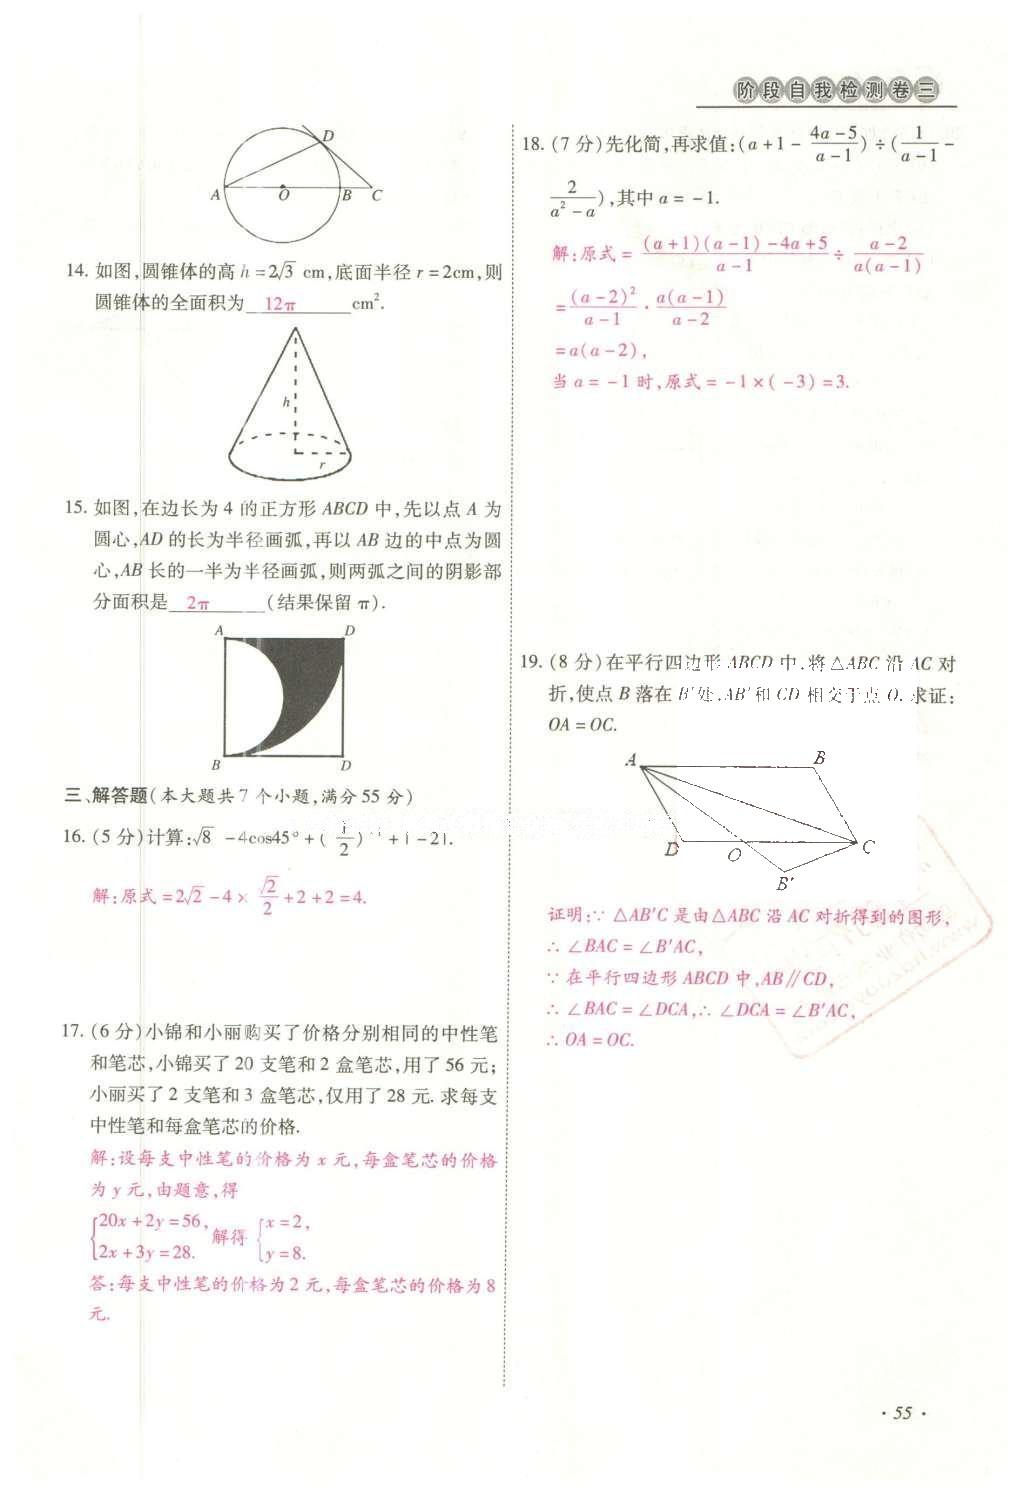 阶段自我检测卷三
A O B C D
14. 如图,圆锥体的高 h=2√3 cm,底面半径 r=2cm,则
圆锥体的全面积为 12π cm².
h
r
15. 如图,在边长为 4 的正方形 ABCD 中,先以点 A 为
圆心,AD 的长为半径画弧,再以 AB 边的中点为圆
心,AB 长的一半为半径画弧,则两弧之间的阴影部
分面积是 2π (结果保留 π).
A D
B D
三、解答题(本大题共 7 个小题,满分 55 分)
16. (5 分)计算:√8 -4cos45°+(1/2)⁻¹+|-2|.
解:原式=2√2-4×√2/2+2+2=4.
17. (6 分)小锦和小丽购买了价格分别相同的中性笔
和笔芯,小锦买了 20 支笔和 2 盒笔芯,用了 56 元;
小丽买了 2 支笔和 3 盒笔芯,仅用了 28 元. 求每支
中性笔和每盒笔芯的价格.
解:设每支中性笔的价格为 x 元,每盒笔芯的价格
为 y 元,由题意,得
{20x+2y=56, 解得 {x=2,
2x+3y=28. y=8.
答:每支中性笔的价格为 2 元,每盒笔芯的价格为 8
元.
18. (7 分)先化简,再求值:(a+1-(4a-5)/(a-1))÷(1/(a-1)-
2/(a²-a)),其中 a=-1.
解:原式=((a+1)(a-1)-4a+5)/(a-1)÷(a-2)/(a(a-1))
=(a-2)²/(a-1)·a(a-1)/(a-2)
=a(a-2),
当 a=-1 时,原式=-1×(-3)=3.
19. (8 分)在平行四边形 ABCD 中,将△ABC 沿 AC 对
折,使点 B 落在 B′处,AB′和 CD 相交于点 O. 求证:
OA=OC.
A B
D O C
B′
证明:∵ △AB′C 是由△ABC 沿 AC 对折得到的图形,
∴ ∠BAC=∠B′AC,
∵ 在平行四边形 ABCD 中,AB∥CD,
∴ ∠BAC=∠DCA,∴ ∠DCA=∠B′AC,
∴ OA=OC.
· 55 ·